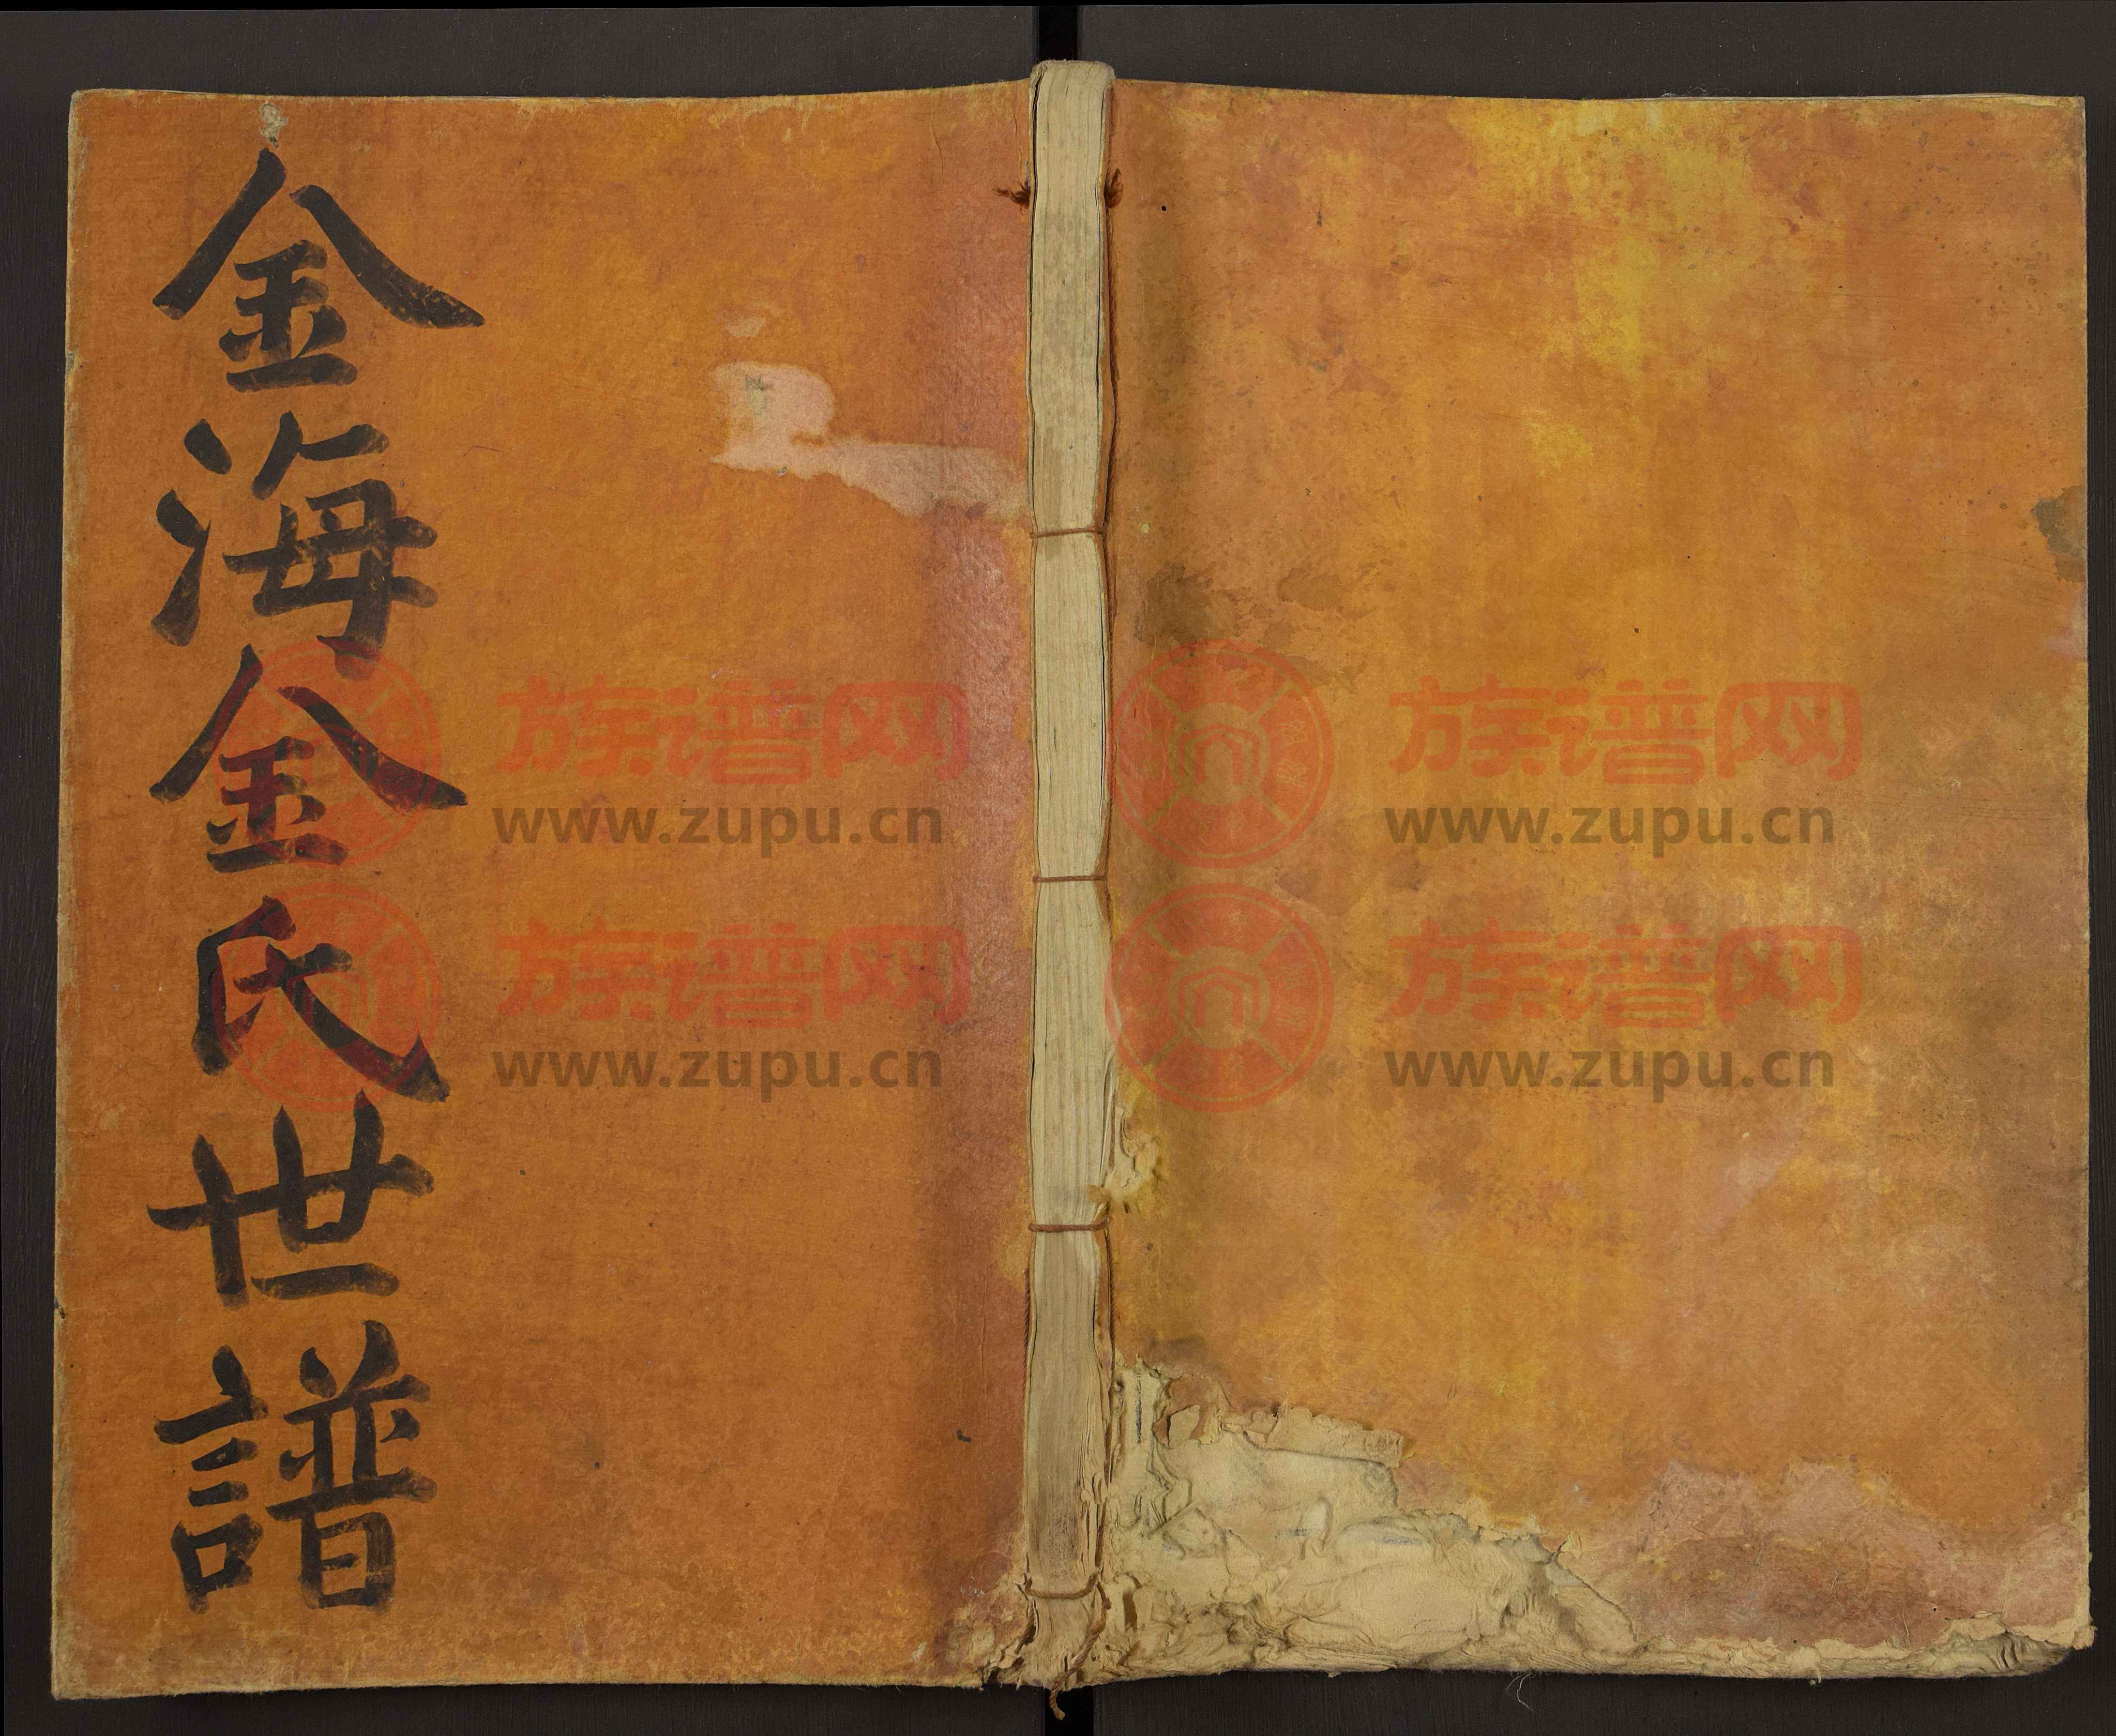 金海金氏世譜
族谱网
www.zupu.cn
族谱网
www.zupu.cn
族谱网
www.zupu.cn
族谱网
www.zupu.cn